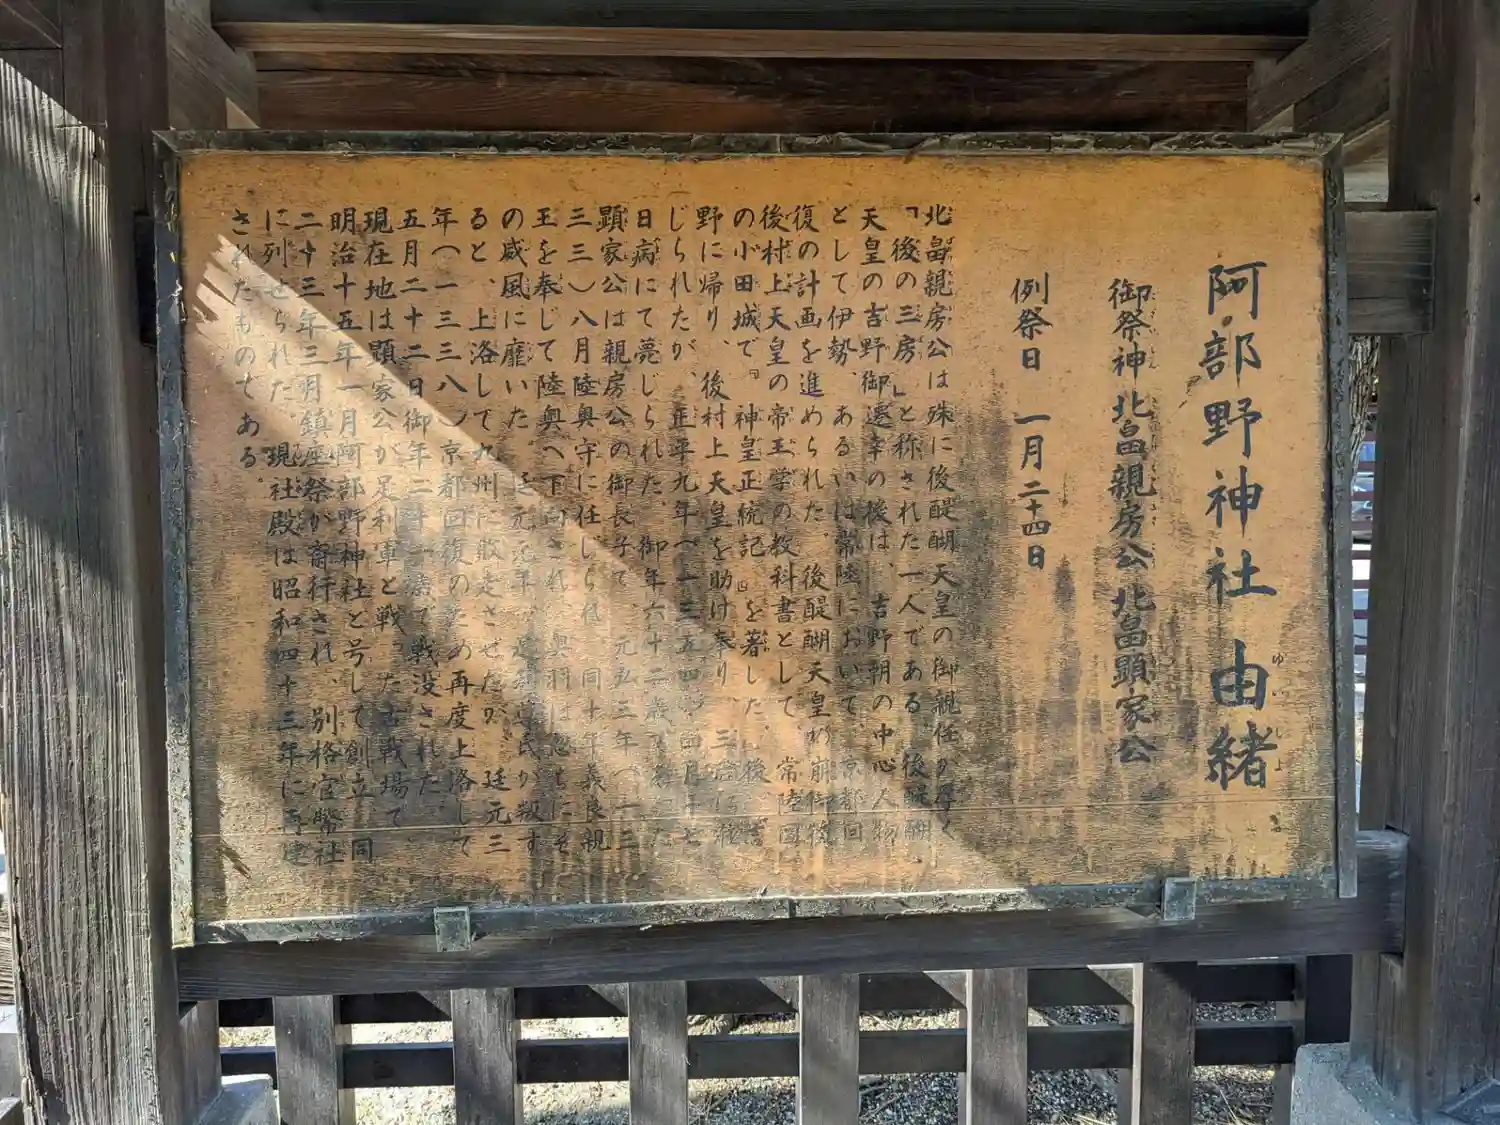 阿部野神社 由緒
御祭神 北畠親房公 北畠顕家公
例祭日 一月二十四日
北畠親房公は殊に後醍醐天皇の御親任が厚く
「後の三房」と称された一人である。後醍醐
天皇の吉野御遷幸の後は、吉野朝の中心人物
として伊勢、あるいは常陸において、京都回
復の計画を進められた。後醍醐天皇が崩御後
後村上天皇の帝王学の教科書として 常陸国
の小田城で『神皇正統記』を著した。後
野に帰り、後村上天皇を助け奉り、三
じられたが、正平九年(一三五四)四月十七
日病にて薨じられた 御年六十二歳
顕家公は親房公の御長子で、元弘三年(一三
三三)八月陸奥守に任じられ 同十年義良親
王を奉じて陸奥へ下向され、奥羽は忽ちにそ
の威風に靡いた。延元元年、足利尊氏が叛す
ると、上洛して九州に敗走させたが、延元三
年(一三三八)京都回復のため再度上洛して
五月二十二日御年二十一歳で戦没された。
現在地は顕家公が足利軍と戦った古戦場で
明治十五年一月阿部野神社と号して創立 同
二十三年三月鎮座祭が斎行され、別格官幣社
に列せられた。現社殿は昭和四十三年に再建
されたものである。